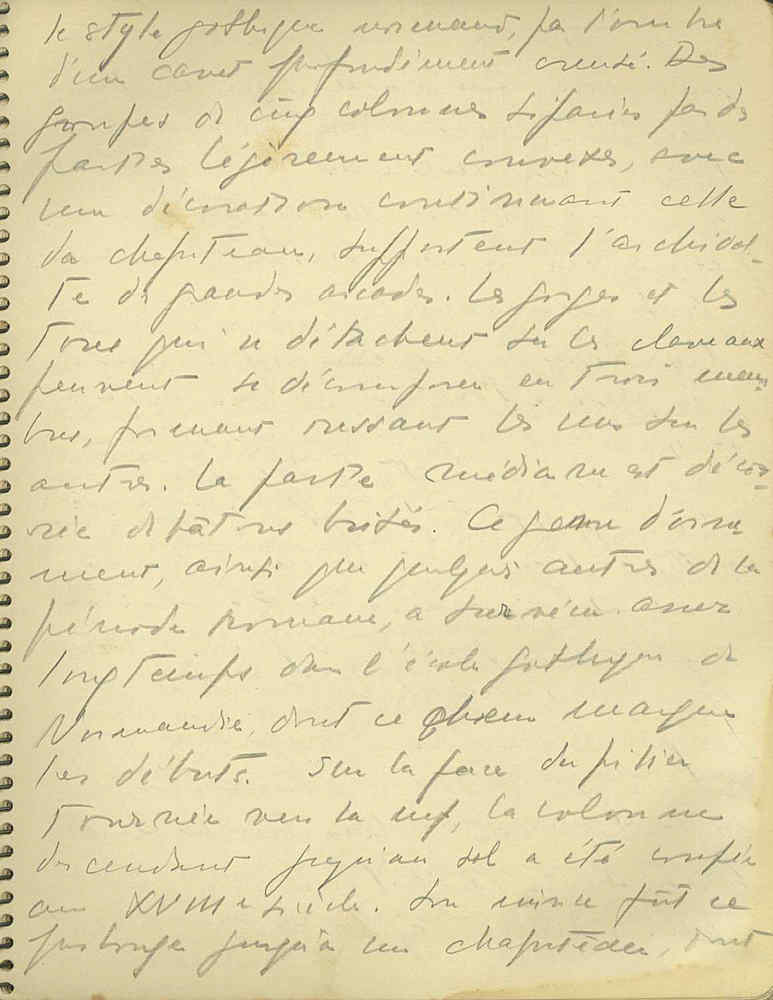 le style gothique normand, par l'ombre
d'un cavet profondément creusé. Des
groupes de cinq colonnes séparées par des
parties légèrement convexes, avec
une décoration continuant celle
du chapiteau, supportent l'archivol-
te des grandes arcades. Les gorges et les
tores qui se détachent sur les claveaux
peuvent se décomposer en trois mem-
bres, formant ressaut les uns sur les
autres. La partie médiane est déco-
rée de bâtons brisés. Ce genre d'orne-
ment, ainsi que quelques autres de la
période romane, a survécu assez
longtemps dans l'école gothique de
Normandie, dont ce chœur marque
les débuts. Sur la face du pilier
tournée vers la nef, la colonne
descendant jusqu'au sol a été coupée
au XVIIIe siècle. Son mince fût se
prolonge jusqu'à un chapiteau, dont